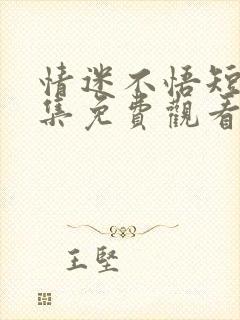 情迷不悟短
集免費觀看
王堅